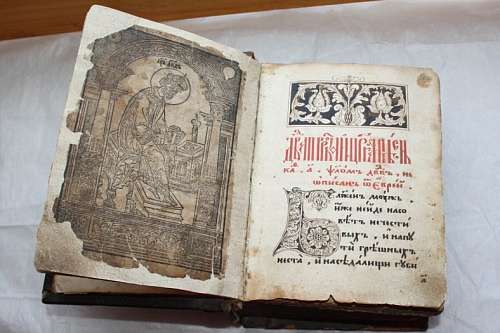 ка . а . ѱлом двдъ , не
ѡписанъ ѿ еврѣй
Блженъ мѹжъ
иже нейде насо
вѣтъ нечести
выхъ , и напѹ
ти грѣшныхъ
неста , и наседалищи гѹби